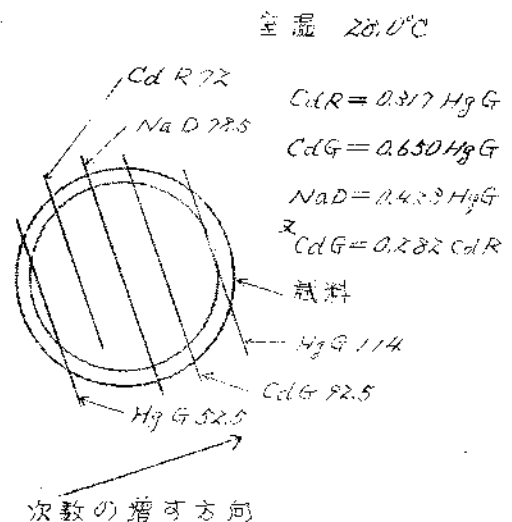 室温 28.0°C
Cd R 72
Na D 78.5
CdR = 0.317 HgG
CdG = 0.650 HgG
NaD = 0.423 HgG
又 CdG = 0.282 CdR
試料
Hg G 114
CdG 92.5
Hg G 52.5
次数の増す方向